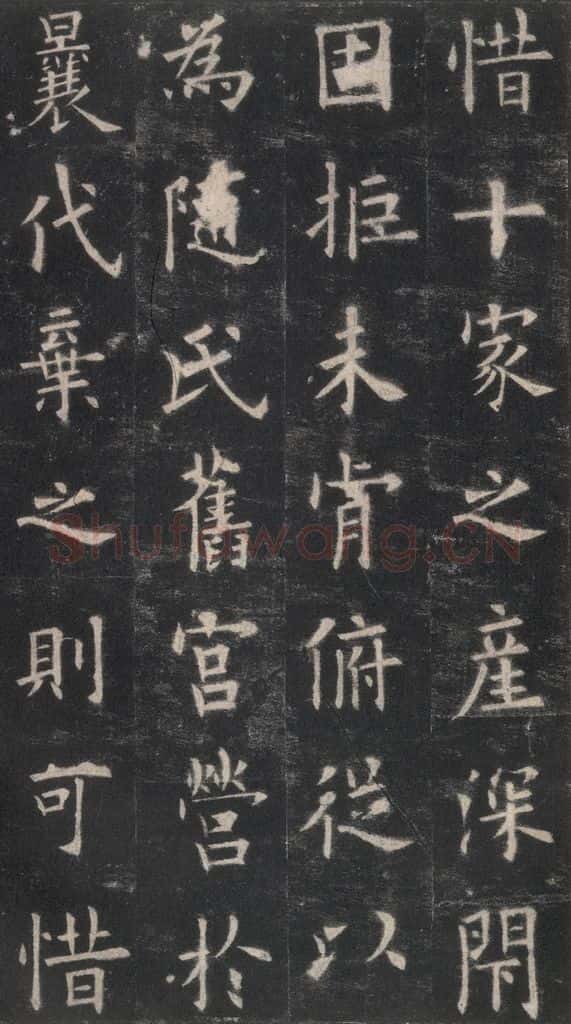 惜十家之産深閇
固拒未肯俯從以
為隨氏舊宮營於
曩代棄之則可惜
Shufawang.CN